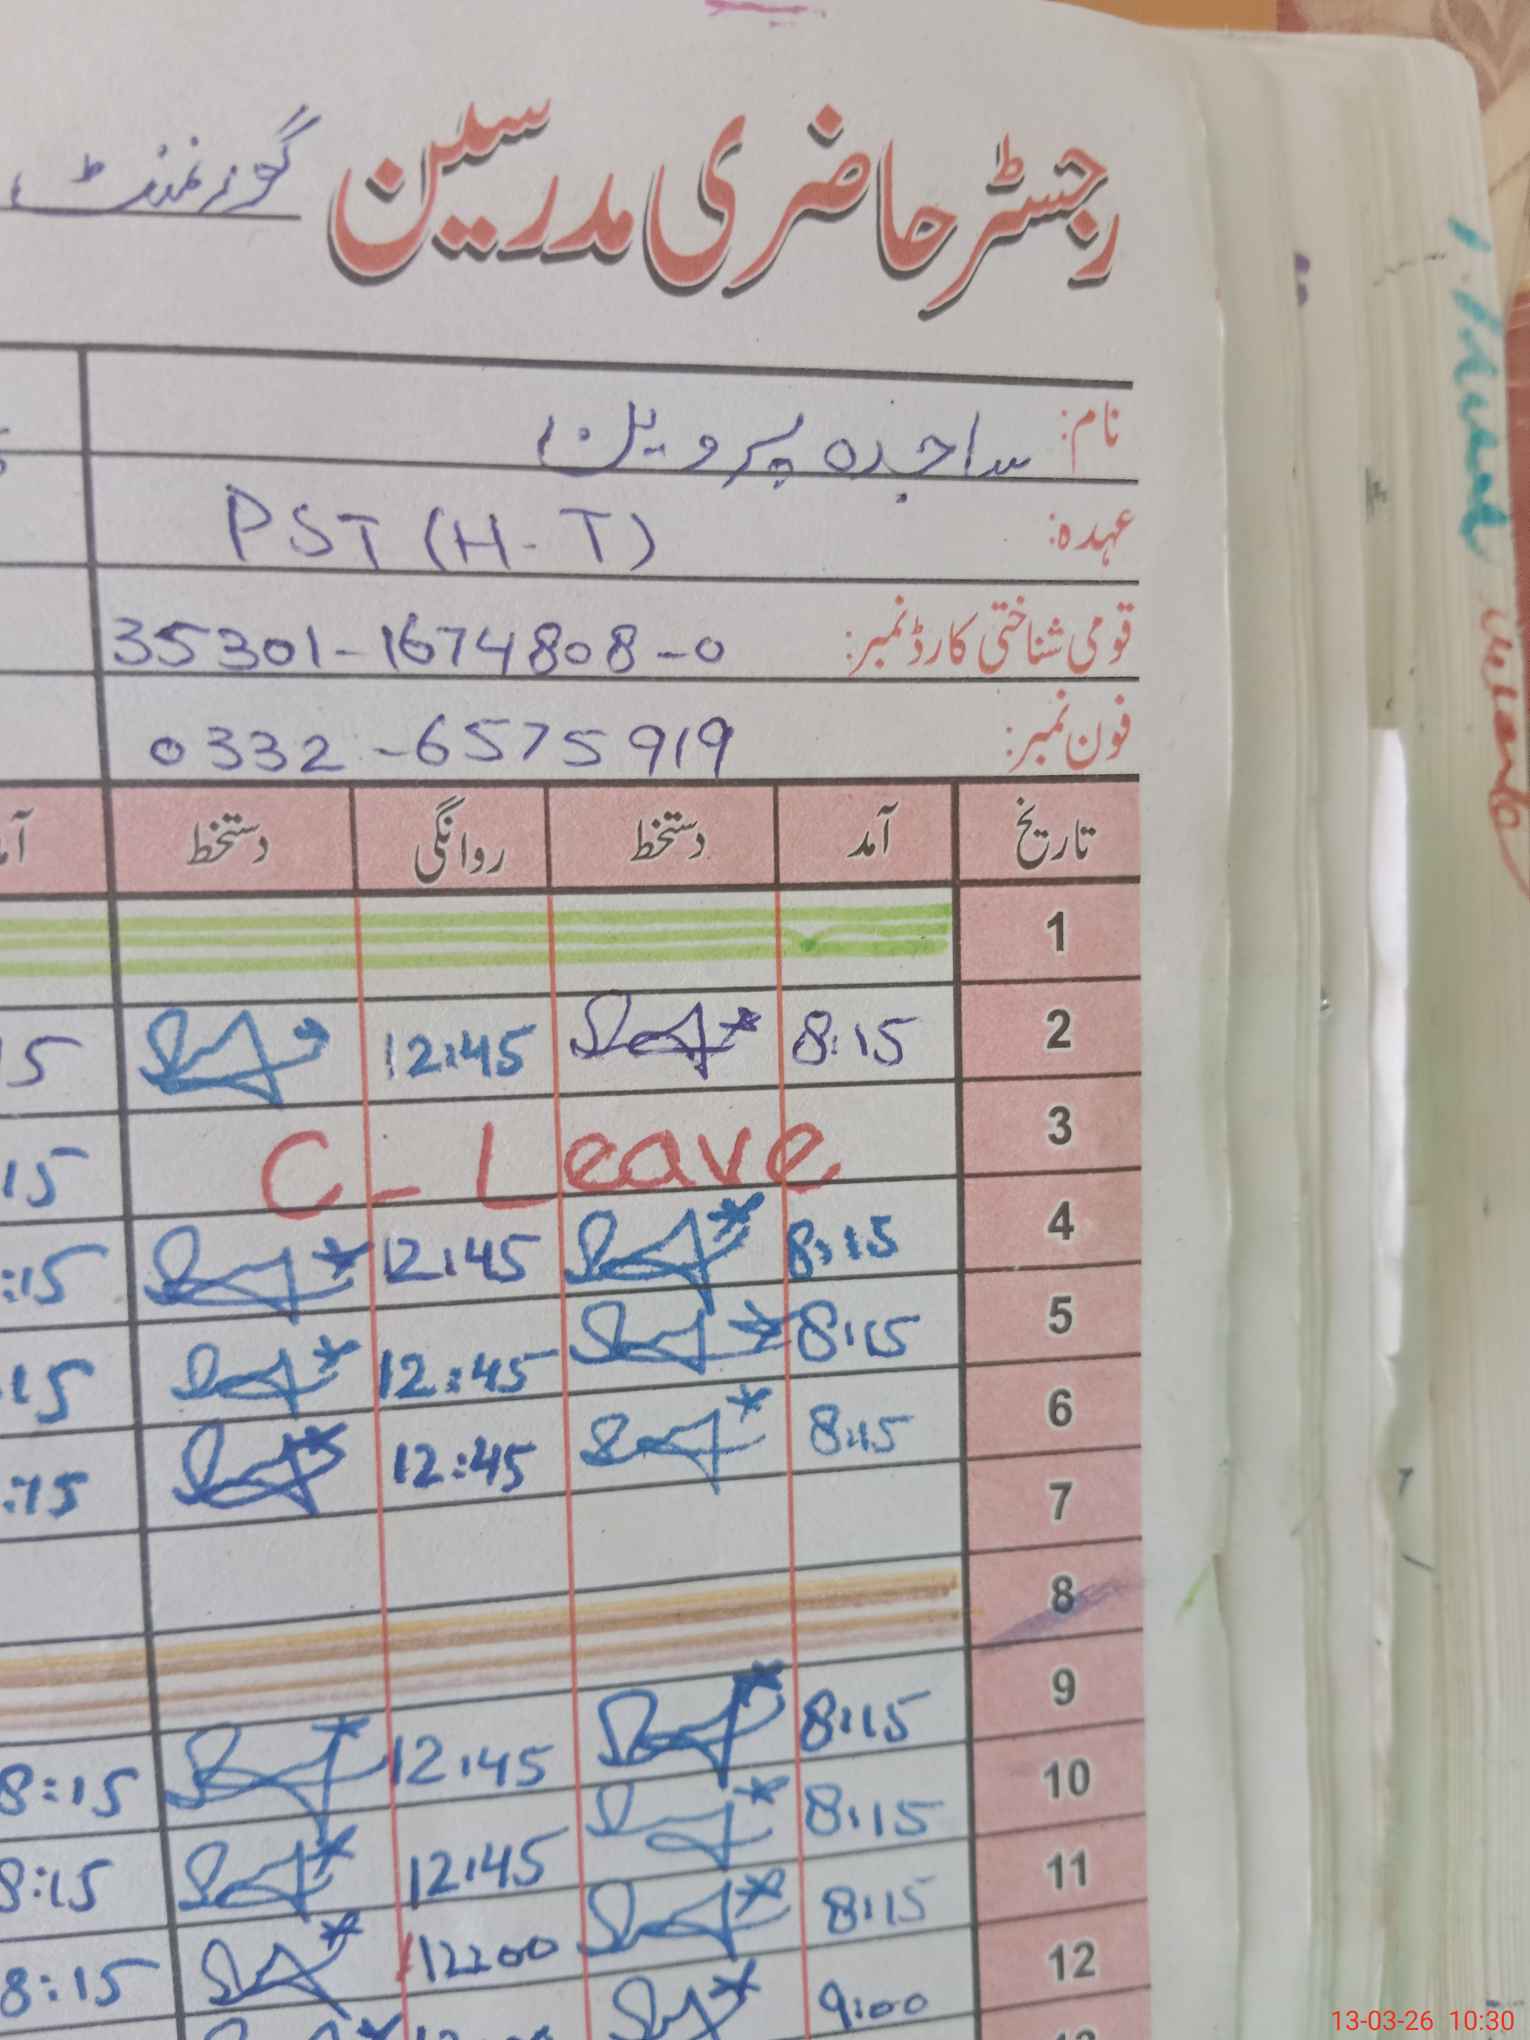 رجسٹر حاضری مدرسین گورنمنٹ
نام: ساجدہ پروین
عہدہ: PST (H-T)
قومی شناختی کارڈ نمبر: 35301-1674808-0
فون نمبر: 0332-6575919
تاریخ آمد دستخط روانگی دستخط
1
2 8:15 12:45
3 C-Leave
4 8:15 12:45
5 8:15 12:45
6 8:15 12:45
7
8
9 8:15 12:45 8:15
10 8:15 12:45 8:15
11 8:15 12:00 8:15
12 9:00
13-03-26 10:30